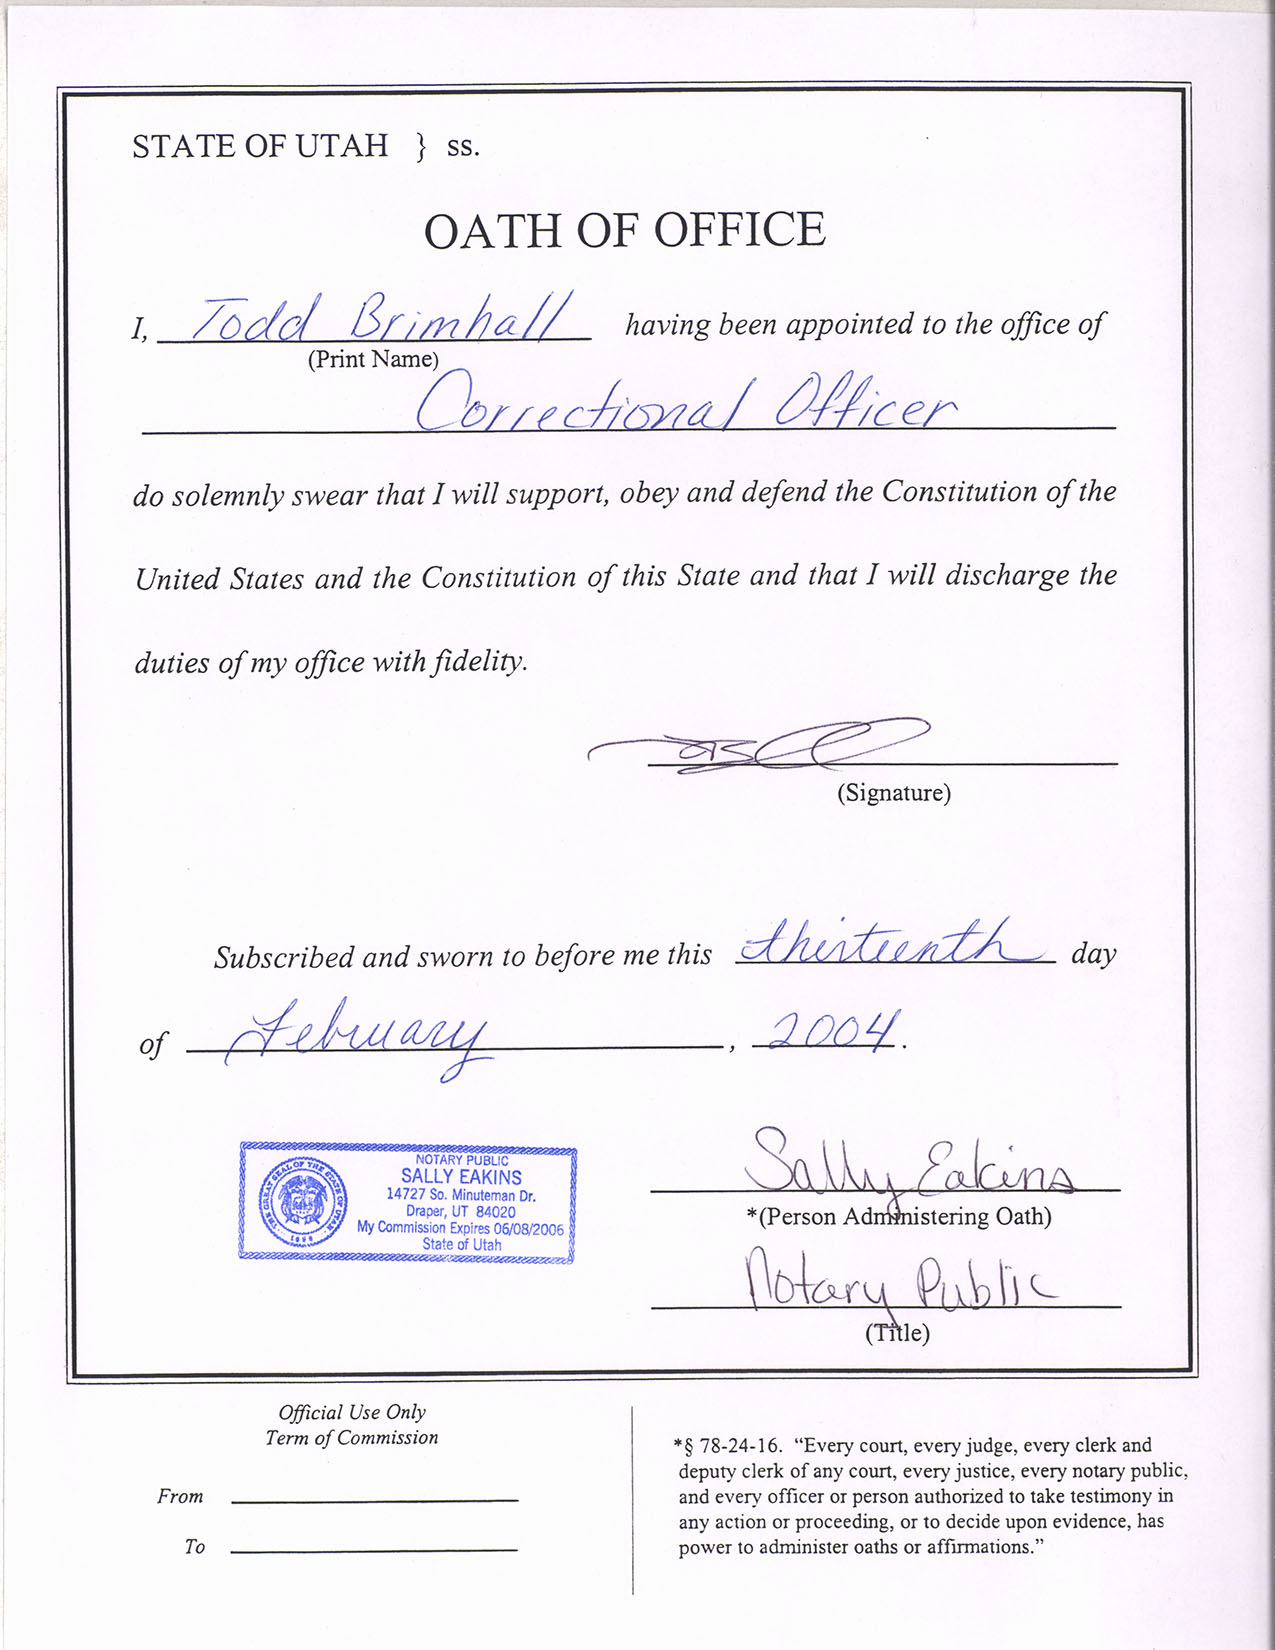 STATE OF UTAH } ss.
OATH OF OFFICE
I, Todd Brimhall having been appointed to the office of
(Print Name)
Correctional Officer
do solemnly swear that I will support, obey and defend the Constitution of the
United States and the Constitution of this State and that I will discharge the
duties of my office with fidelity.
(Signature)
Subscribed and sworn to before me this thirteenth day
of February, 2004.
NOTARY PUBLIC
SALLY EAKINS
14727 So. Minuteman Dr.
Draper, UT 84020
My Commission Expires 06/08/2006
State of Utah
THE GREAT SEAL OF THE STATE OF UTAH
1896
Sally Eakins
*(Person Administering Oath)
Notary Public
(Title)
Official Use Only
Term of Commission
From
To
*§ 78-24-16. “Every court, every judge, every clerk and
deputy clerk of any court, every justice, every notary public,
and every officer or person authorized to take testimony in
any action or proceeding, or to decide upon evidence, has
power to administer oaths or affirmations.”